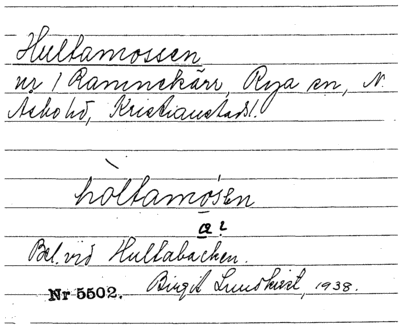 Hultamossen
nr 1 Rammekärr, Rya sn, N.
Åsbo hd, Kristianstads l.
hòltamósen
œ ?
Bel. vid Hultabacken.
Nr 5502. Birgit Lundkvist, 1938.